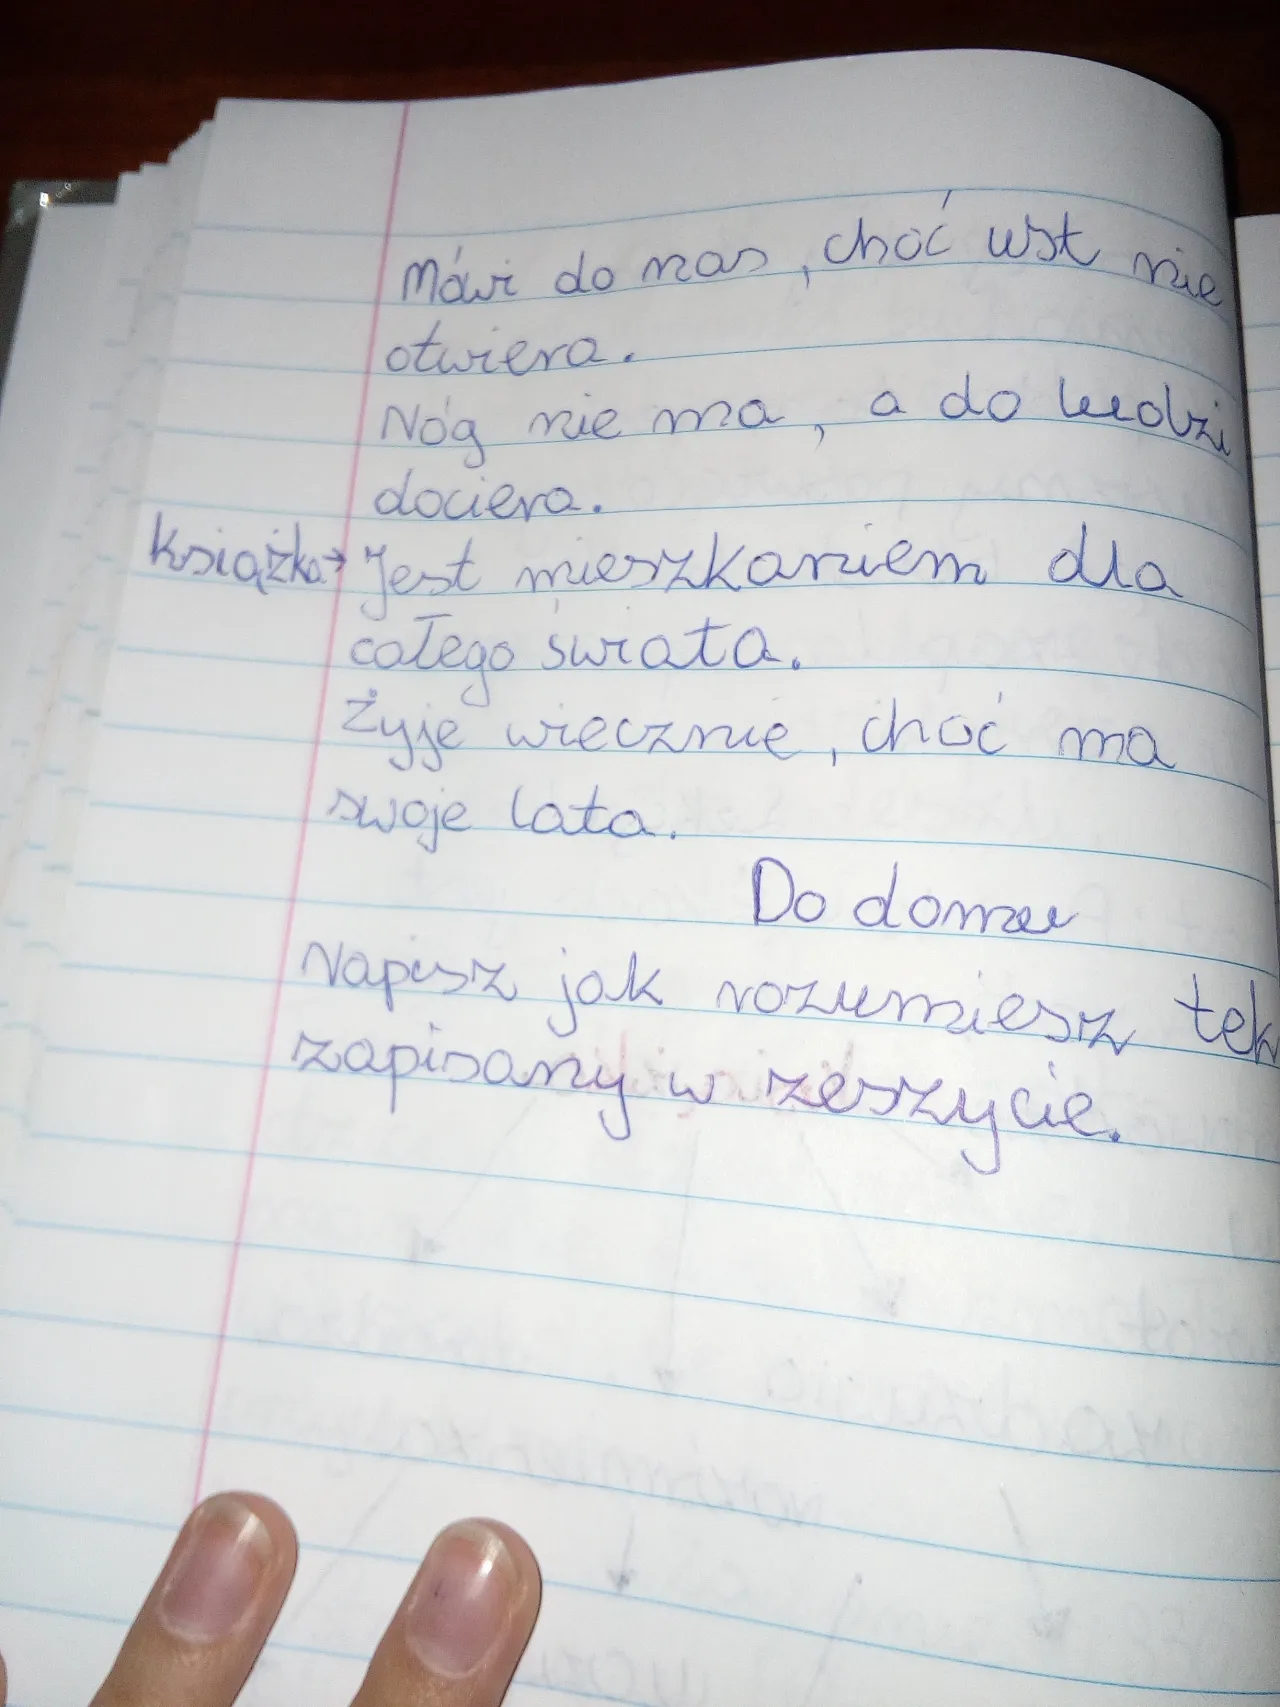 Mówi do nas, choć ust nie
otwiera.
Nóg nie ma, a do ludzi
dociera.
Książka → Jest mieszkaniem dla
całego świata.
Żyje wiecznie, choć ma
swoje lata.
Do domu
Napisz jak rozumiesz tek
zapisany w zeszycie.